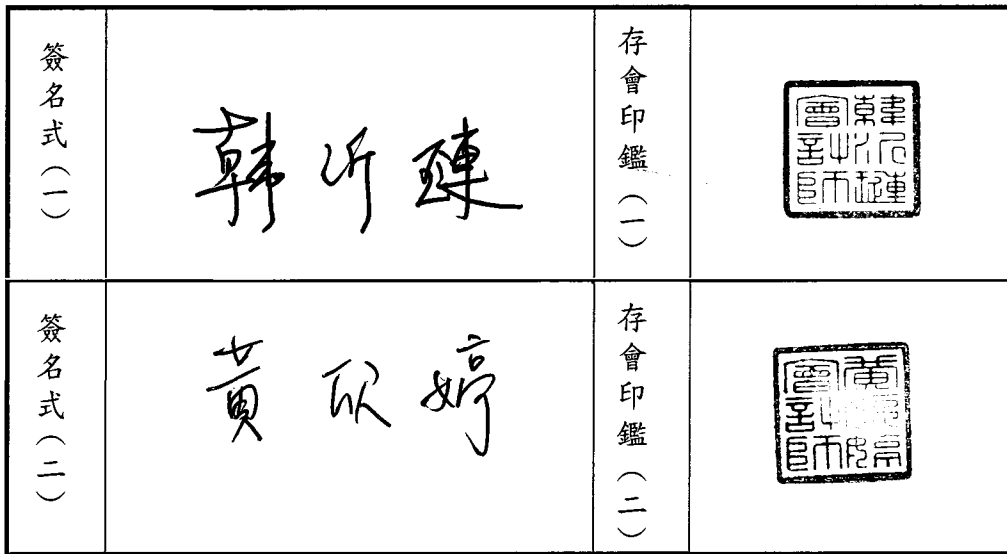 簽名式(一)
韓沂璉
存會印鑑(一)
韓沂璉會計師
簽名式(二)
黃欣婷
存會印鑑(二)
黃欣婷會計師